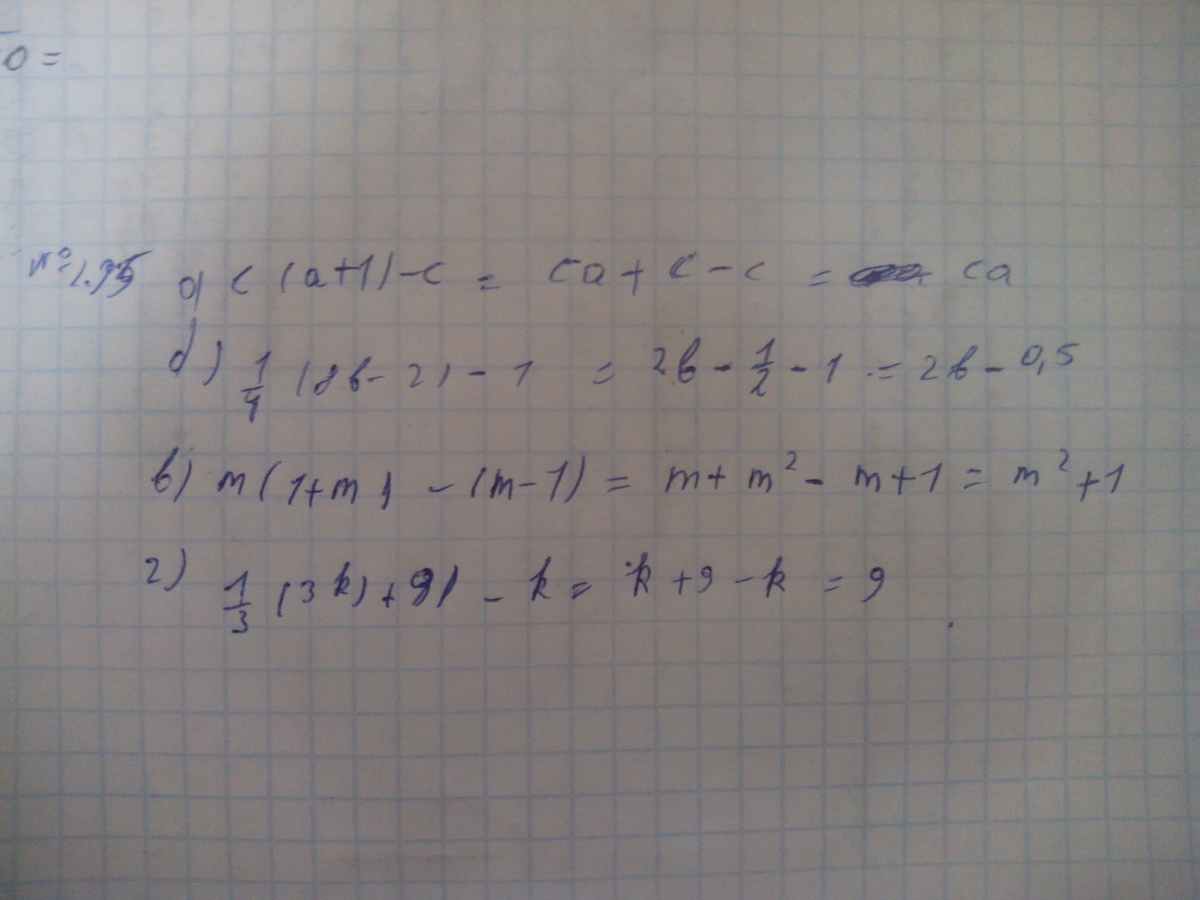 0 =
№ 1.95 а) c (a+1) - c = ca + c - c = ca
б) 1/4 (8b - 2) - 1 = 2b - 1/2 - 1 = 2b - 0,5
в) m (1+m) - (m-1) = m + m² - m + 1 = m² + 1
г) 1/3 (3k) + 9) - k = k + 9 - k = 9